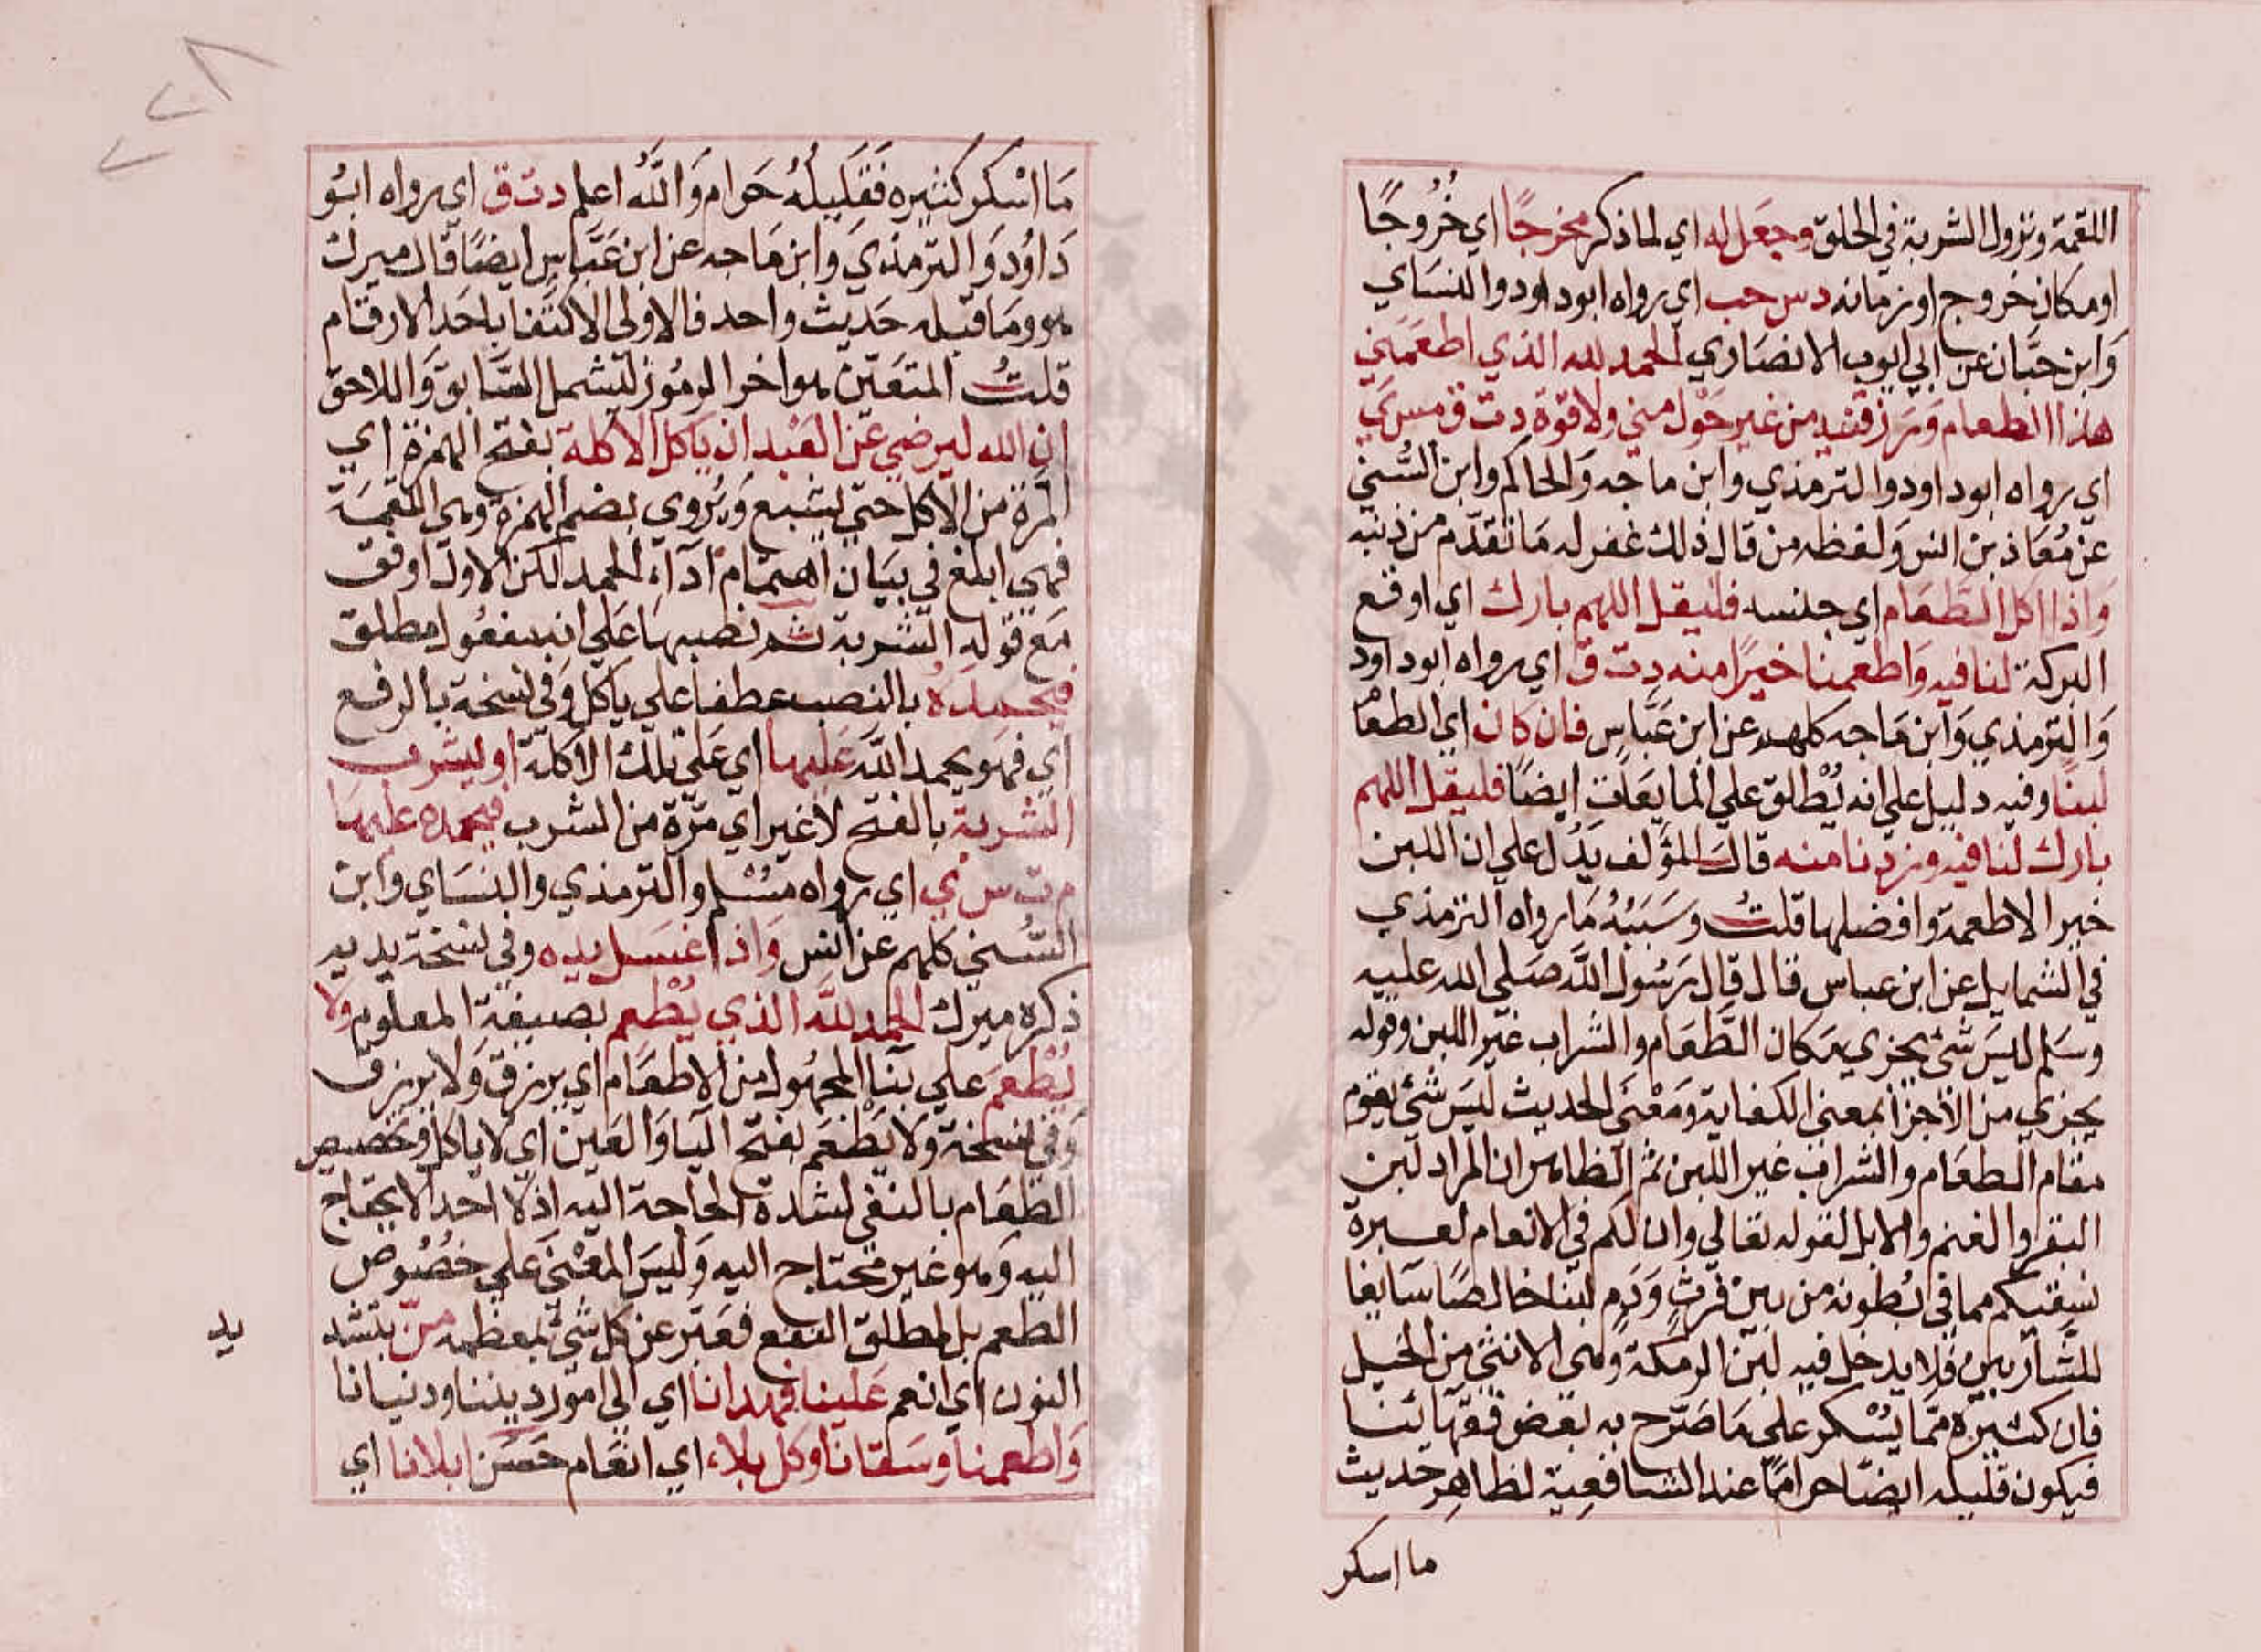 اللقمة ونزول الشربة في الحلق وجعل له اي لما ذكر مخرجًا اي خُرُوجًا
او مكان خروج او زمانه د س حب اي رواه ابو داود والنسَاي
وَابن حبَّان عن ابي ايوب الانصَاري الحمد لله الذي اطعَمَني
هذا الطعام وَرَزقنيه من غير حَوْل مني ولا قوة د ت ق مس ي
اي رواه ابو داود والترمذي وابن ماجه وَالحاكم وابن السُّني
عن مُعَاذ بن انس وَلفظه من قال ذلك غفر له مَا تقدّم من ذنبه
وَاذا اكل الطَّعَام اي جنسه فليقل اللهم بارك اي اوقع
البركة لنا فيه وَاطعمنا خيرًا منه د ت ق اي رواه ابو داود
وَالترمذي وَابن مَاجه كلهم عن ابن عَبَّاس فان كان اي الطعَام
لبنًا وفيه دليل علي انه يُطْلق علي المايعَات ايضًا فليقل اللهم
بارك لنا فيه وزدنا منه قال المؤلف يَدُل علي ان اللبن
خير الاطعمة وافضلها قلتُ وسَبَبُهُ مَا رواه الترمذي
في الشمايل عن ابن عباس قال قال رَسُول الله صَلي الله عليه
وسَلم ليسَ شئ يجزي مكان الطَّعَام والشراب غير اللبن وقوله
يجزي من الاجزا بمعني الكفاية وَمَعْنَي الحديث ليسَ شئ يقوم
مقام الطعَام والشراب غير اللبن ثم الظاهر ان المراد لبن
البقر والغنم والابل لقوله تعَالي وان لكم في الانعام لعبرة
نسقيكم مما في بُطونه من بين فرثٍ وَدَمٍ لبنا خالصًا سَايغا
للشَّاربين فلا يدخل فيه لبن الرمكة وهي الانثي من الخيل
فان كثيره ممّا يُسْكر علي مَا صَرّح به بعض فقهَائنا
فيكون قليله ايضًا حرامًا عند الشافعِية لظاهِر حديث
ما اسكر
مَا اسْكر كثيره فَقَلِيلُهُ حَرام وَاللَّهُ اعلم د ت ق اي رواه ابوُ
دَاوُد وَالترمذي وَابن مَاجه عن ابن عَبَّاس ايضًا قال ميرك
هو ومَا قبله حَديث واحد فالاولي الاكتفا باحَد الارقام
قلتُ المتعَيّن هو اخر الرمُوز ليشمل السَّابق وَاللاحق
ان الله ليرضي عن العَبْد ان يَاكل الاكلة بفتح الهمزة اي
المَرَّة من الاكل حتي يشبع وَيُروي بضم الهمزة وهي اللقمَة
فهي ابلغ في بيَان اهتمَام ادآء الحمد لكن الاول اوفق
مَع قوله الشربة ثم نصبهَا عَلي انه مفعُول مطلق
فيحمدَهُ بالنصب عطفا علي ياكل وَفي نسخة بالرفع
اي فهو يحمد اللَّه عَليها اي عَلي تلك الاكلة او ليشرب
الشربة بالفتح لا غير اي مَرَّة من الشرب فيحمده عليهَا
م ت س ي اي رواه مسْلم والترمذي والنسَاي وابن
السُّني كلهم عن انس وَاذا غسَل يده وفي نسخة يديه
ذكره ميرك الحمد للَّه الذي يُطعم بصيغة المعلوم وَلا
يُطْعمَ علي بنآ المجهُول من الاطعَام اي يرزق وَلا يرزق
وَفي نسخة ولا يَطْعَم بفتح اليا وَالعَين اي لا ياكل وتخصيص
الطعَام بالنفي لشدة الحاجة اليه اذ لا احد الا يحتاج
اليه وَهو غير محتاج اليه وَليسَ المعْنَي علي خصُوص
الطعم بل لمطلق النفع فعَبّر عن كل شئ بمعظمه منّ بتشد
يد
النون اي انعم عَلينا فهدانا اي الي امور ديننا ودنيانا
وَاطعمنا وسَقانا وكل بلاء اي انعَام حَسَن ابلانا اي